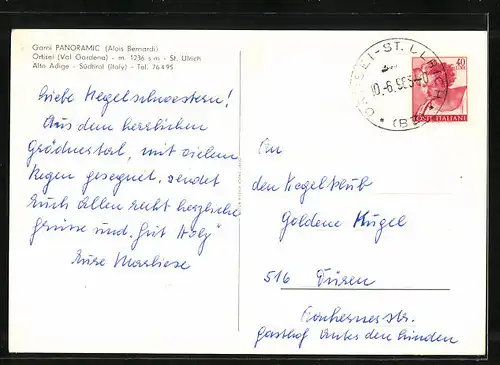 Garni PANORAMIC (Alois Bernardi)
Ortisei (Val Gardena) - m. 1236 s m - St. Ulrich
Alto Adige - Südtirol (Italy) - Tel. 76495
Liebe Kegelschwestern!
Aus dem herrlichen
Grödnertal, mit vielem
Regen gesegnet, sendet
Euch Allen recht herzliche
Grüsse und „Gut Holz"
Eure Marliese
ORTISEI-ST. ULRICH
10.-6.
(BZ)
40
POSTE ITALIANE
An
den Kegelklub
Goldene Kugel
516 Düren
Gasthof Unter den Linden